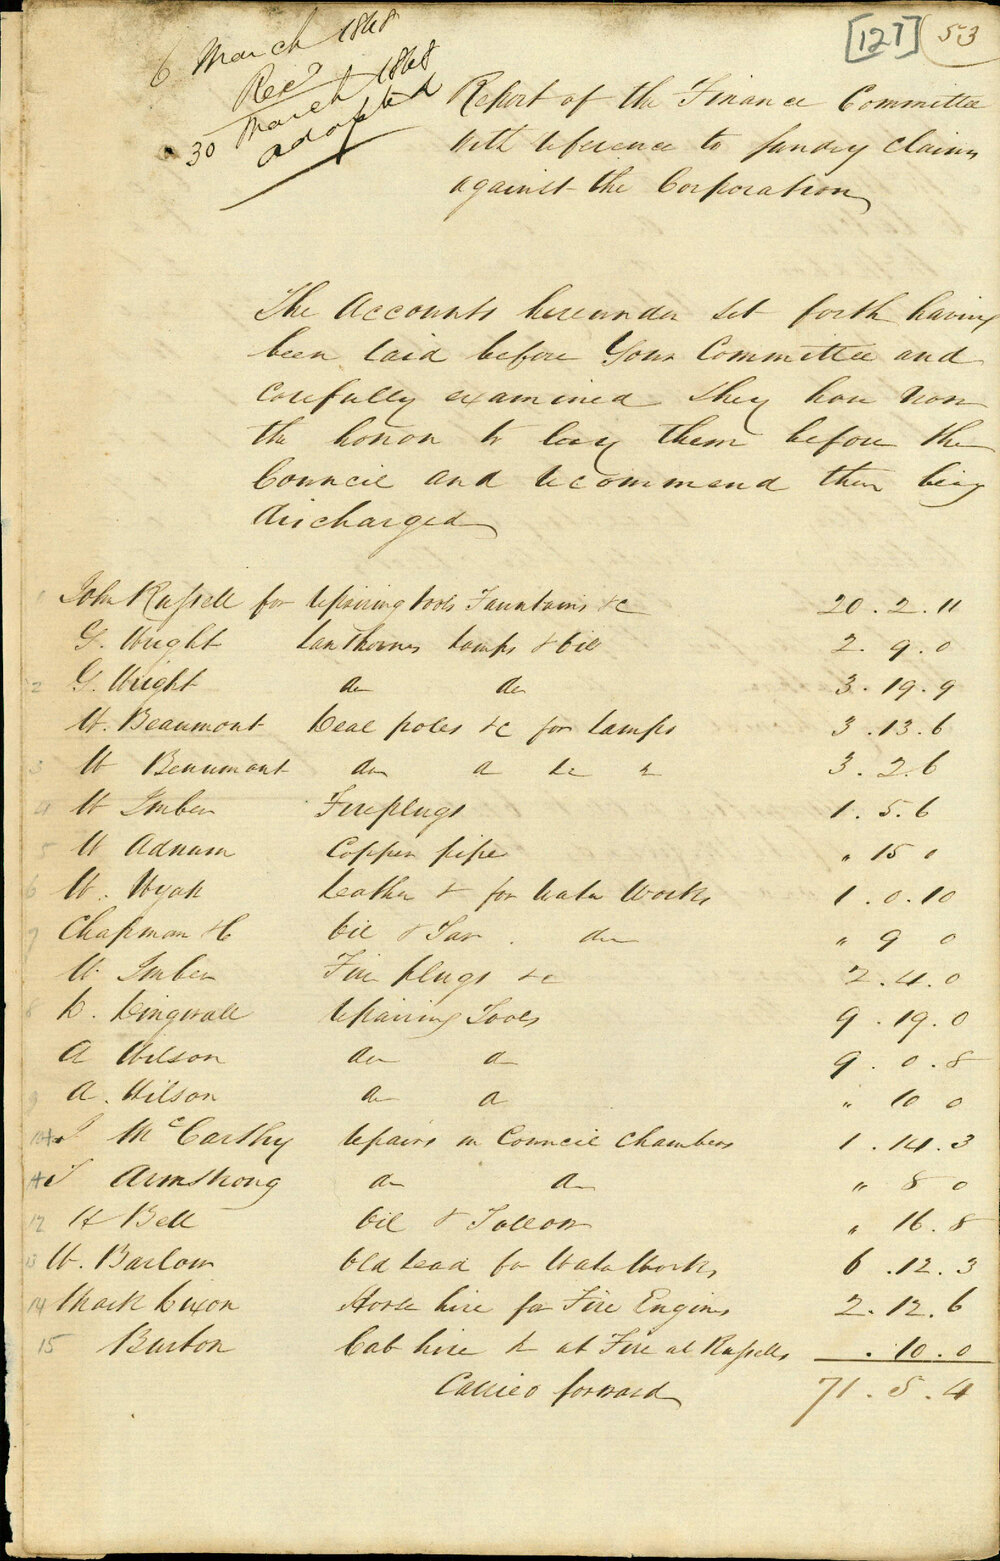 [127] 53
6 March 1868
Recd
30 March 1868
adopted
Report of the Finance Committee
with reference to sundry claims
against the Corporation
The Accounts hereunder set forth having
been laid before Your Committee and
carefully examined they have now
the honor to lay them before the
Council and recommend their being
discharged
1 John Russell for repairing tools Fountains &c 20 . 2 . 11
G. Wright Lanthorns lamps & Oil 2 . 9 . 0
2 G. Wright do do 3 . 19 . 9
W. Beaumont Deal poles &c for lamps 3 . 13 . 6
3 W Beaumont do 3 . 2 . 6
4 W Imber Fireplugs 1 . 5 . 6
5 W Adnum Copper pipe " 15 0
6 W. Wyatt Leather & for Water Works 1 . 0 . 10
7 Chapman & Co Oil & Tar . do " 9 0
W. Imber Fire plugs &c 2 . 4 . 0
8 D. Dingwall repairing Tools 9 . 19 . 0
A Wilson do do 9 . 0 . 8
9 A. Wilson do do " 10 0
10 J McCarthy repairs in Council Chambers 1 . 14 . 3
T Armstrong do do " 8 0
12 H Bell Oil & Tallow " 16 . 8
13 W. Barlow Old Lead for Water Works 6 . 12 . 3
14 Mark Dixon Horse hire for Fire Engines 2 . 12 . 6
15 Burton Cab hire &c at Fire at Russells . 10 . 0
Carried forward 71 . 5 . 4